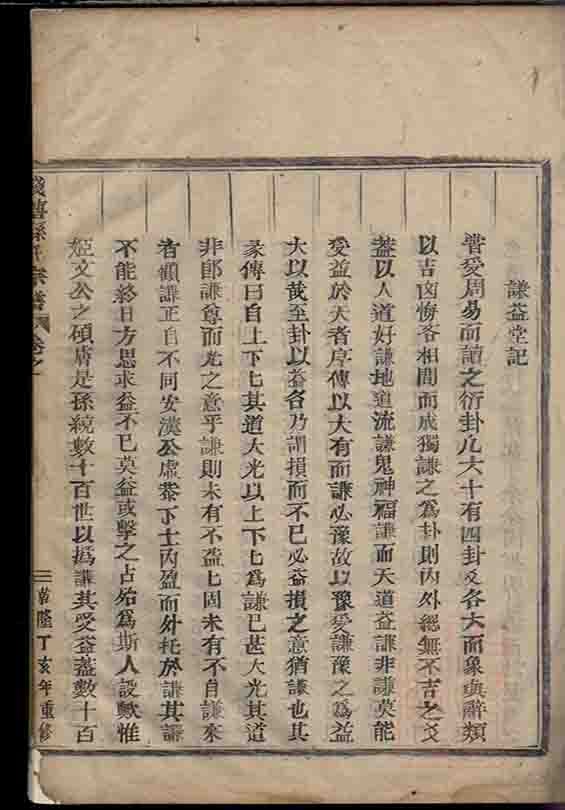 謙益堂記
嘗受周易而讀之衍卦凡六十有四卦爻各六而象與辭類
以吉凶悔吝相間而成獨謙之為卦則內外總無不吉之爻
蓋以人道好謙地道流謙鬼神福謙而天道益謙非謙莫能
受益於天者序傳以大有而謙必豫故以豫受謙豫之為益
大以哉至卦以益名乃謂損而不已必益損之意猶謙也其
彖傳曰自上下下其道大光以上下下為謙已甚大光其道
非即謙尊而光之意乎謙則未有不益上固未有不自謙來
者顧謙正自不同安漢公虛恭下士內盈而外托於謙其謙
不能終日方思求益不已莫益或擊之占殆為斯人設歟惟
姬文公之碩膚是孫統數十百世以撝謙其受益蓋數十百
孫氏宗譜 卷之
乾隆丁亥年重修